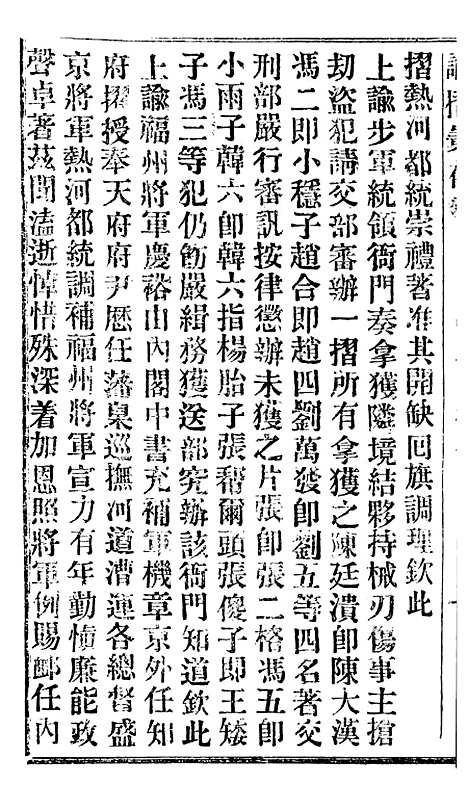 摺熱河都統崇禮著准其開缺回旗調理欽此
上諭步軍統領衙門奏拿獲隣境結夥持械刃傷事主搶
刧盜犯請交部審辦一摺所有拿獲之陳廷潰卽陳大漢
馮二卽小穩子趙合卽趙四劉萬發卽劉五等四名著交
刑部嚴行審訊按律懲辦未獲之片張卽張二榙馮五卽
小雨子韓六卽韓六指楊胎子張爾頭張傻子卽王矮
子馮三等犯仍飭嚴緝務獲送部究辦該衙門知道欽此
上諭福州將軍慶裕山內閣中書充補軍機章京外任知
府擢授奉天府府尹歷任藩臬巡撫河道漕運各總督盛
京將軍熱河都統調補福州將軍宣力有年勤愼廉能政
聲卓著茲聞溘逝悼惜殊深着加恩照將軍例賜䘏任內